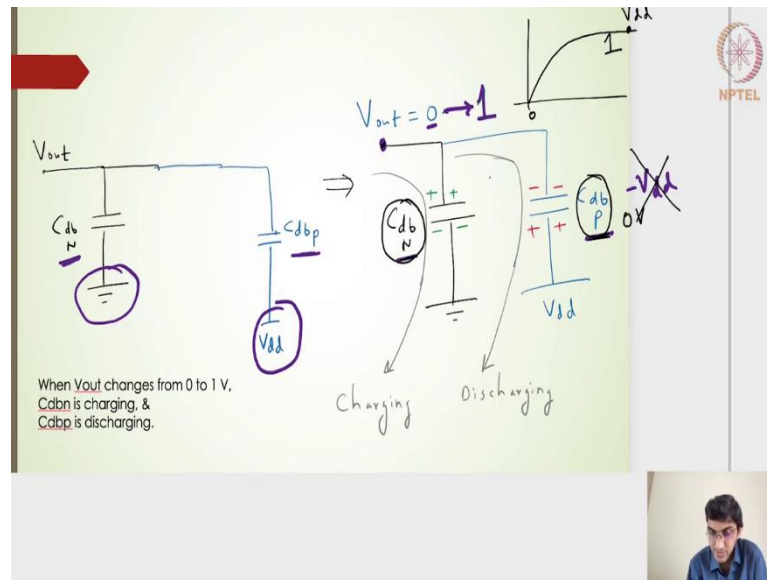 Vdd
1
0
NPTEL
Vout = 0 → 1
Vout
⇒
Cdb
N
Cdbp
Vdd
+ +
- -
Cdb
N
- -
+ +
Cdb
P
-Vdd
0V
Vdd
When Vout changes from 0 to 1 V,
Cdbn is charging, &
Cdbp is discharging.
Charging
Discharging